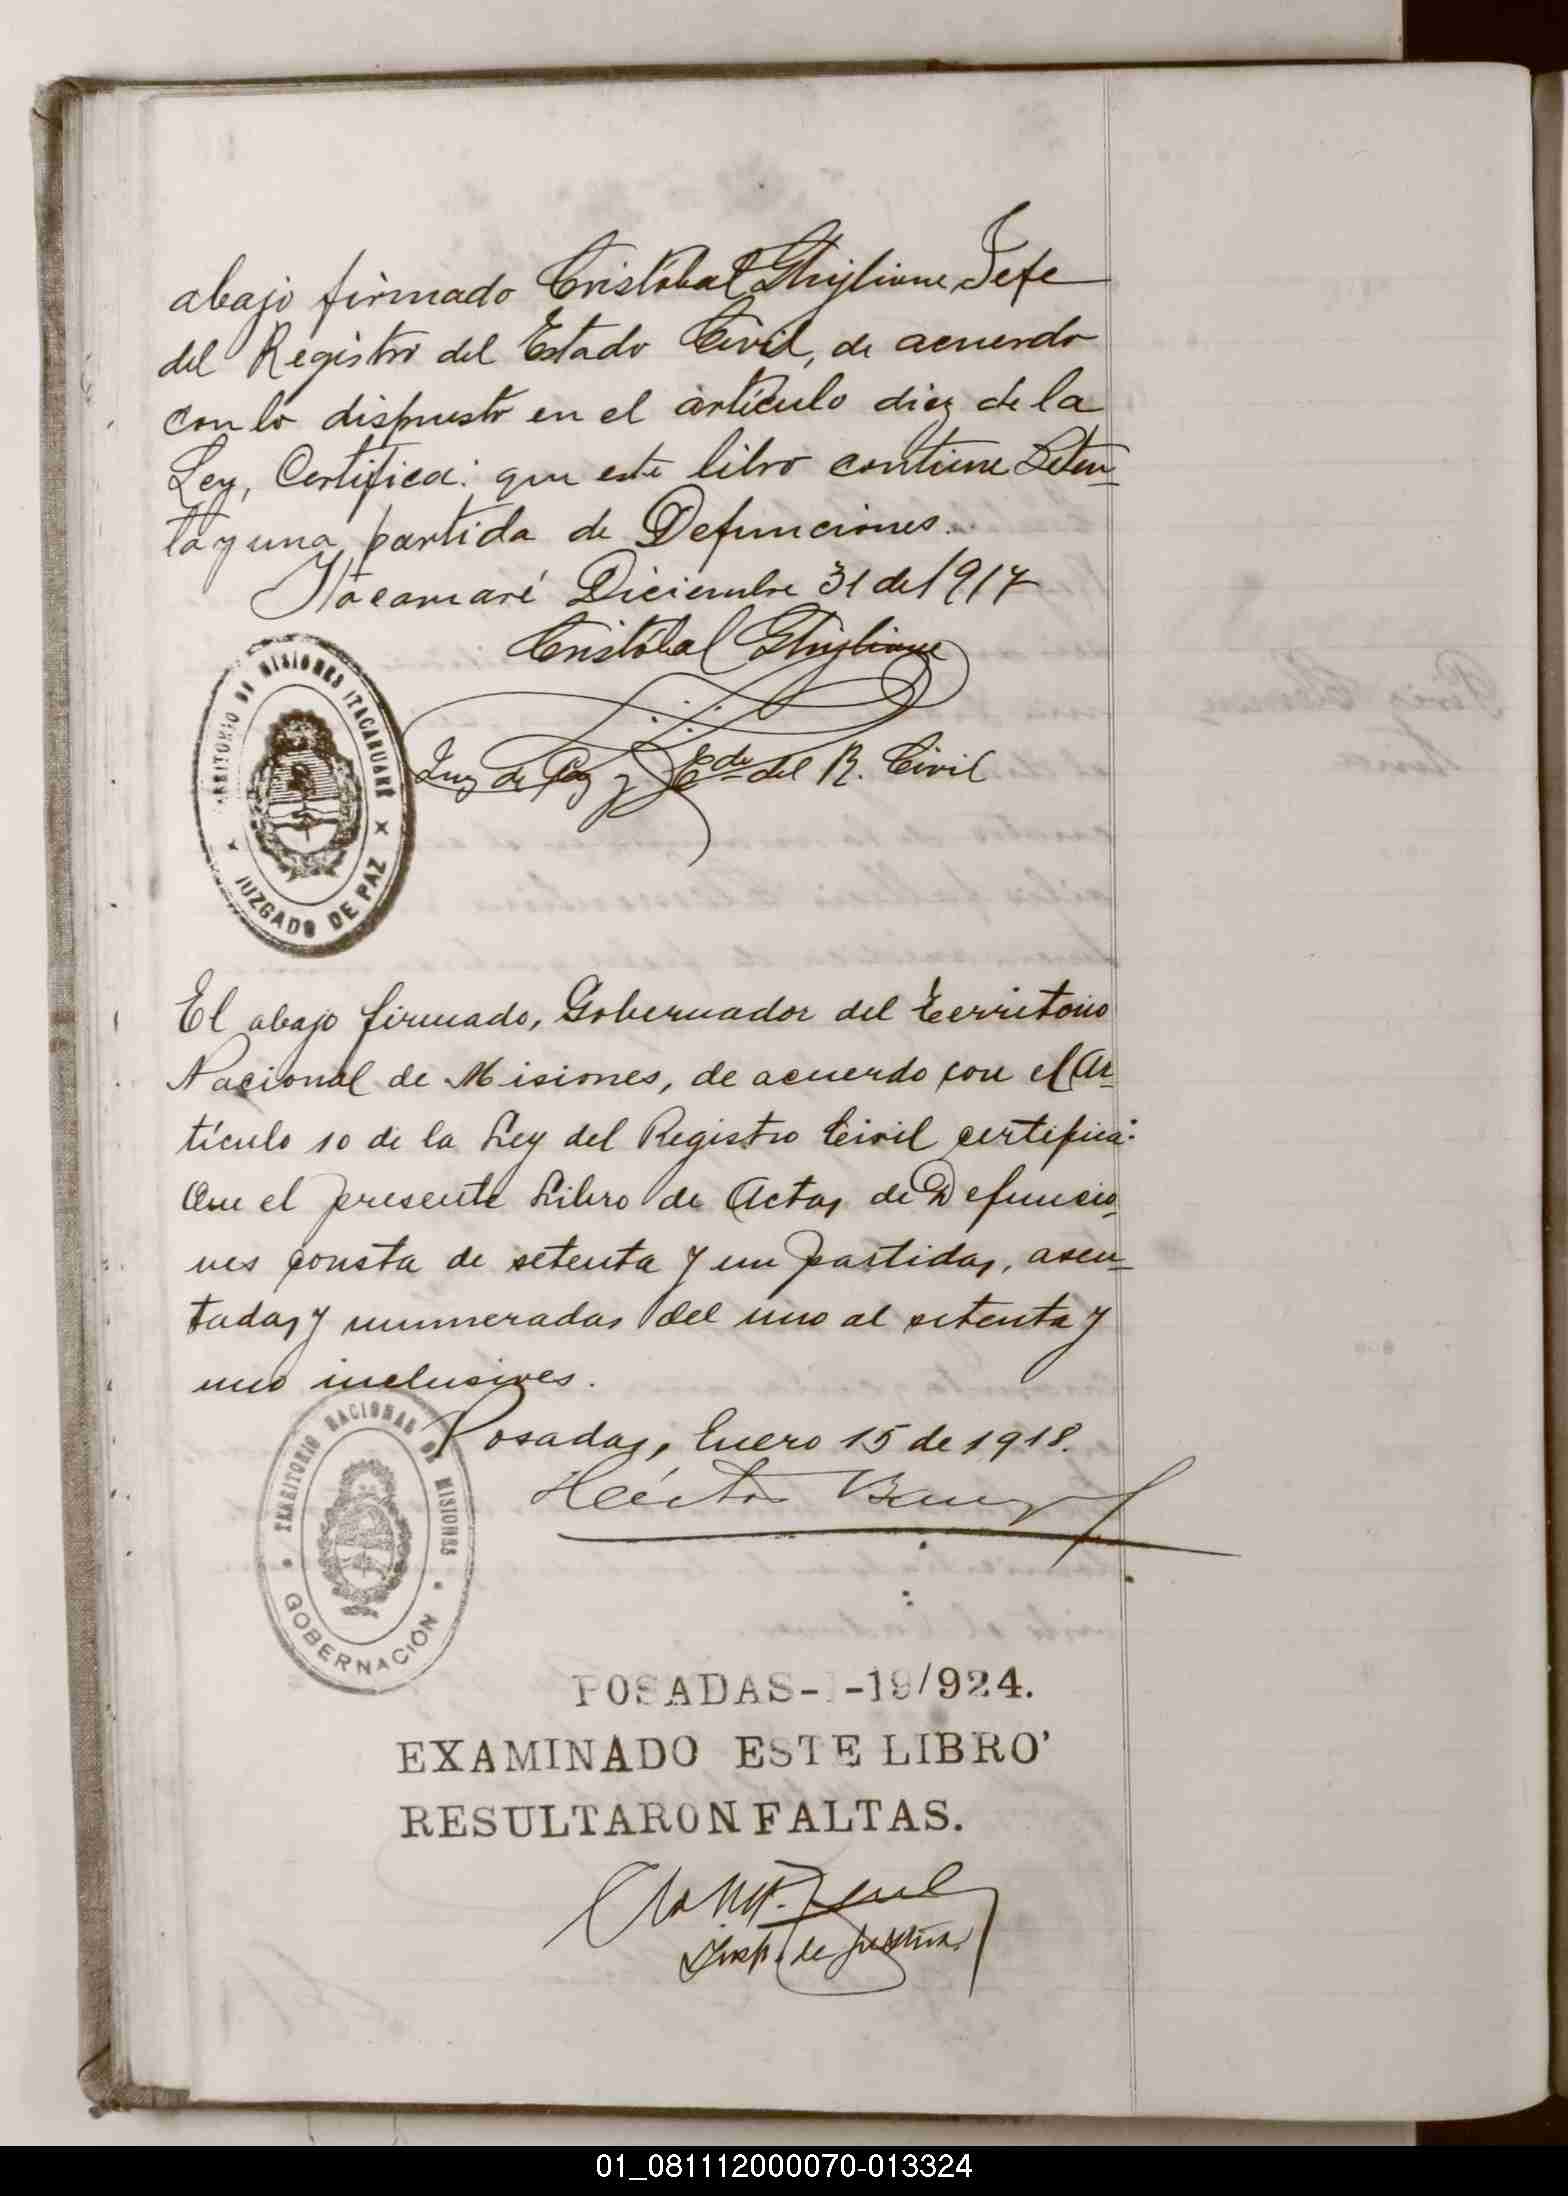 abajo firmado Cristóbal Ghiglione Jefe
del Registro del Estado Civil, de acuerdo
con lo dispuesto en el artículo diez de la
Ley, Certifica: que este libro contiene Seten-
ta y una partida de Defunciones.
Itacaruaré Diciembre 31 de 1917
Cristóbal Ghiglione
TERRITORIO DE MISIONES ITACARUARÉ
JUZGADO DE PAZ
Juez de Paz y Edo del R. Civil
El abajo firmado, Gobernador del Territorio
Nacional de Misiones, de acuerdo con el Ar-
tículo 10 de la Ley del Registro Civil certifica:
Que el presente Libro de Actas de Defuncio-
nes consta de setenta y un partidas, asen-
tadas y numeradas del uno al setenta y
uno inclusives.
Posadas, Enero 15 de 1918.
Héctor
TERRITORIO NACIONAL DE MISIONES
GOBERNACIÓN
POSADAS- -19/924.
EXAMINADO ESTE LIBRO
RESULTARON FALTAS.
Insp. de Justicia
01_081112000070-013324